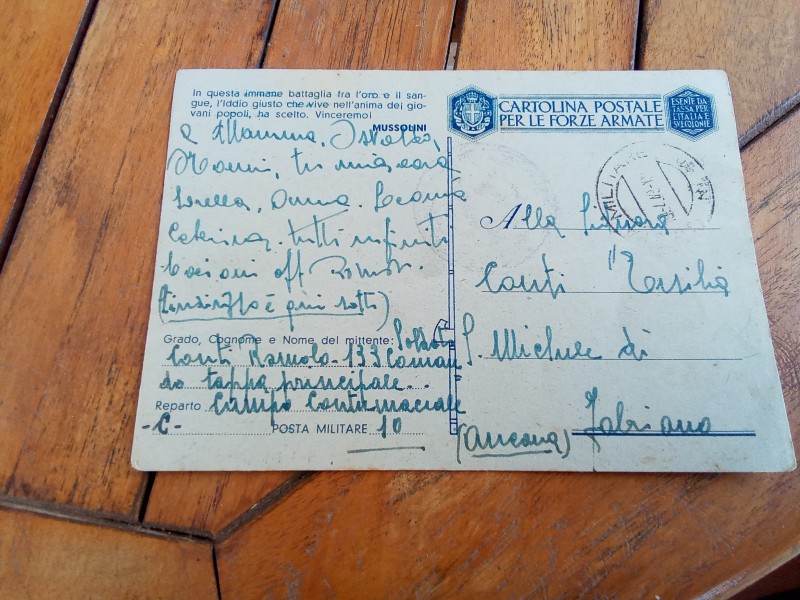 In questa immane battaglia fra l'oro e il san-
gue, l'Iddio giusto che vive nell'anima dei gio-
vani popoli, ha scelto. Vinceremo!
MUSSOLINI
CARTOLINA POSTALE
PER LE FORZE ARMATE
ESENTE DA
TASSA PER
L'ITALIA E
SUE COLONIE
MILITARE
a Mamma,
tu mia cara
sorella, Anna.
Caterina. tutti infiniti
bacioni aff
(l'indirizzo è qui sotto)
Grado, Cognome e Nome del mittente: Soldato
Conti Romolo - 133 Coman
do tappa principale..
Reparto Campo Contumaciale
- C - POSTA MILITARE 10
Alla Signora
Conti Ersilia
S. Michele di
Fabriano
(Ancona)